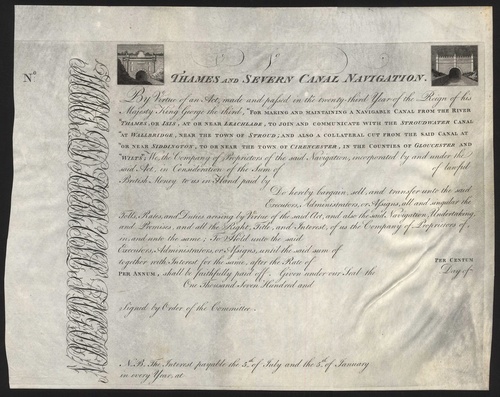 Nº
THAMES AND SEVERN CANAL NAVIGATION.
By Virtue of an Act, made and passed in the twenty-third Year of the Reign of his
Majesty King George the third, "FOR MAKING AND MAINTAINING A NAVIGABLE CANAL FROM THE RIVER
"THAMES, OR ISIS, AT OR NEAR LEACHLADE, TO JOIN AND COMMUNICATE WITH THE STROUDWATER CANAL
"AT WALLBRIDGE, NEAR THE TOWN OF STROUD; AND ALSO A COLLATERAL CUT FROM THE SAID CANAL AT
"OR NEAR SIDDINGTON, TO OR NEAR THE TOWN OF CIRENCESTER, IN THE COUNTIES OF GLOUCESTER AND
"WILTS"; We, the Company of Proprietors of the said Navigation, incorporated by and under the
said Act, in Consideration of the Sum of of lawful
British Money to us in Hand paid by
Do hereby bargain, sell, and transfer unto the said
Executors, Administrators, or Assigns, all and singular the
Tolls, Rates, and Duties arising by Virtue of the said Act, and also the said Navigation, Undertaking,
and Premises, and all the Right, Title, and Interest, of us the Company of Proprietors of,
in, and unto the same; To Hold unto the said
Executors, Administrators, or Assigns, until the said sum of
together with Interest for the same, after the Rate of PER CENTUM
PER ANNUM, shall be faithfully paid off. Given under our Seal the Day of
One Thousand Seven Hundred and
Signed by Order of the Committee.
N.B. The Interest payable the 5th. of July and the 5th. of January
in every Year, at